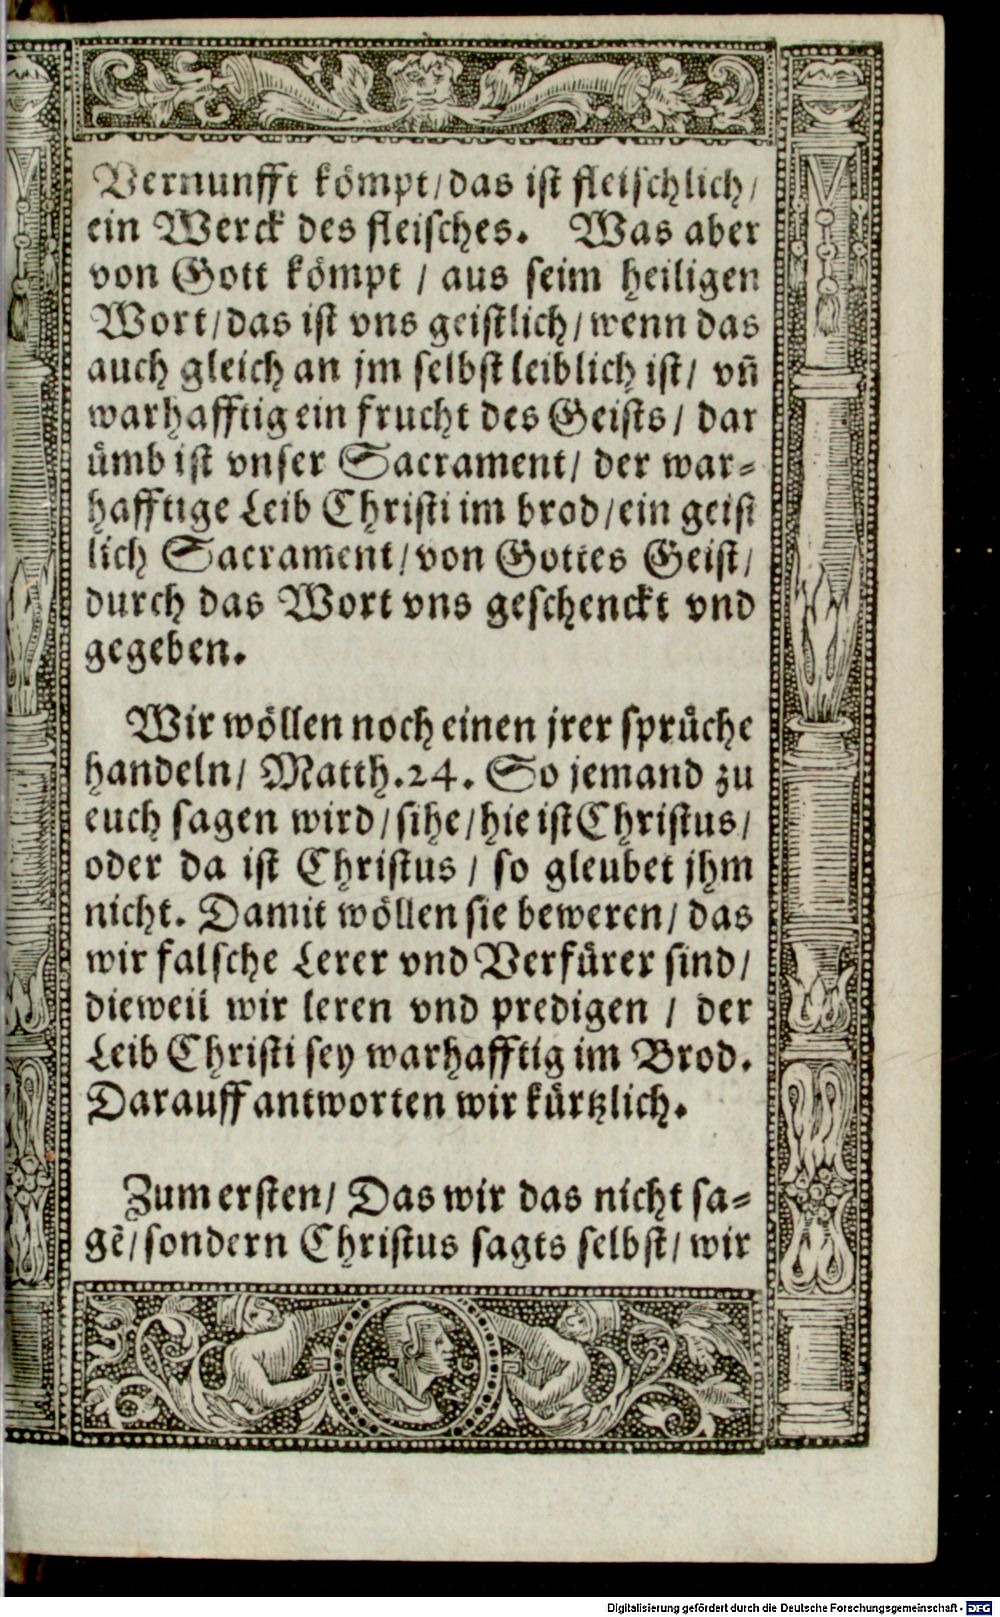 Vernunfft kömpt/das ist fleischlich/
ein Werck des fleisches. Was aber
von Gott kömpt / aus seim heiligen
Wort/das ist vns geistlich/wenn das
auch gleich an jm selbst leiblich ist/ vñ
warhafftig ein frucht des Geists/ dar
ůmb ist vnser Sacrament/ der war⸗
hafftige Leib Christi im brod/ein geist
lich Sacrament/von Gottes Geist/
durch das Wort vns geschenckt vnd
gegeben.
Wir wöllen noch einen jrer sprůche
handeln/ Matth.24. So jemand zu
euch sagen wird/sihe/hie ist Christus/
oder da ist Christus / so gleubet jhm
nicht. Damit wöllen sie beweren/ das
wir falsche Lerer vnd Verfůrer sind/
dieweil wir leren vnd predigen / der
Leib Christi sey warhafftig im Brod.
Darauff antworten wir kůrtzlich.
Zum ersten/ Das wir das nicht sa⸗
gẽ/sondern Christus sagts selbst/ wir
Digitalisierung gefördert durch die Deutsche Forschungsgemeinschaft - DFG